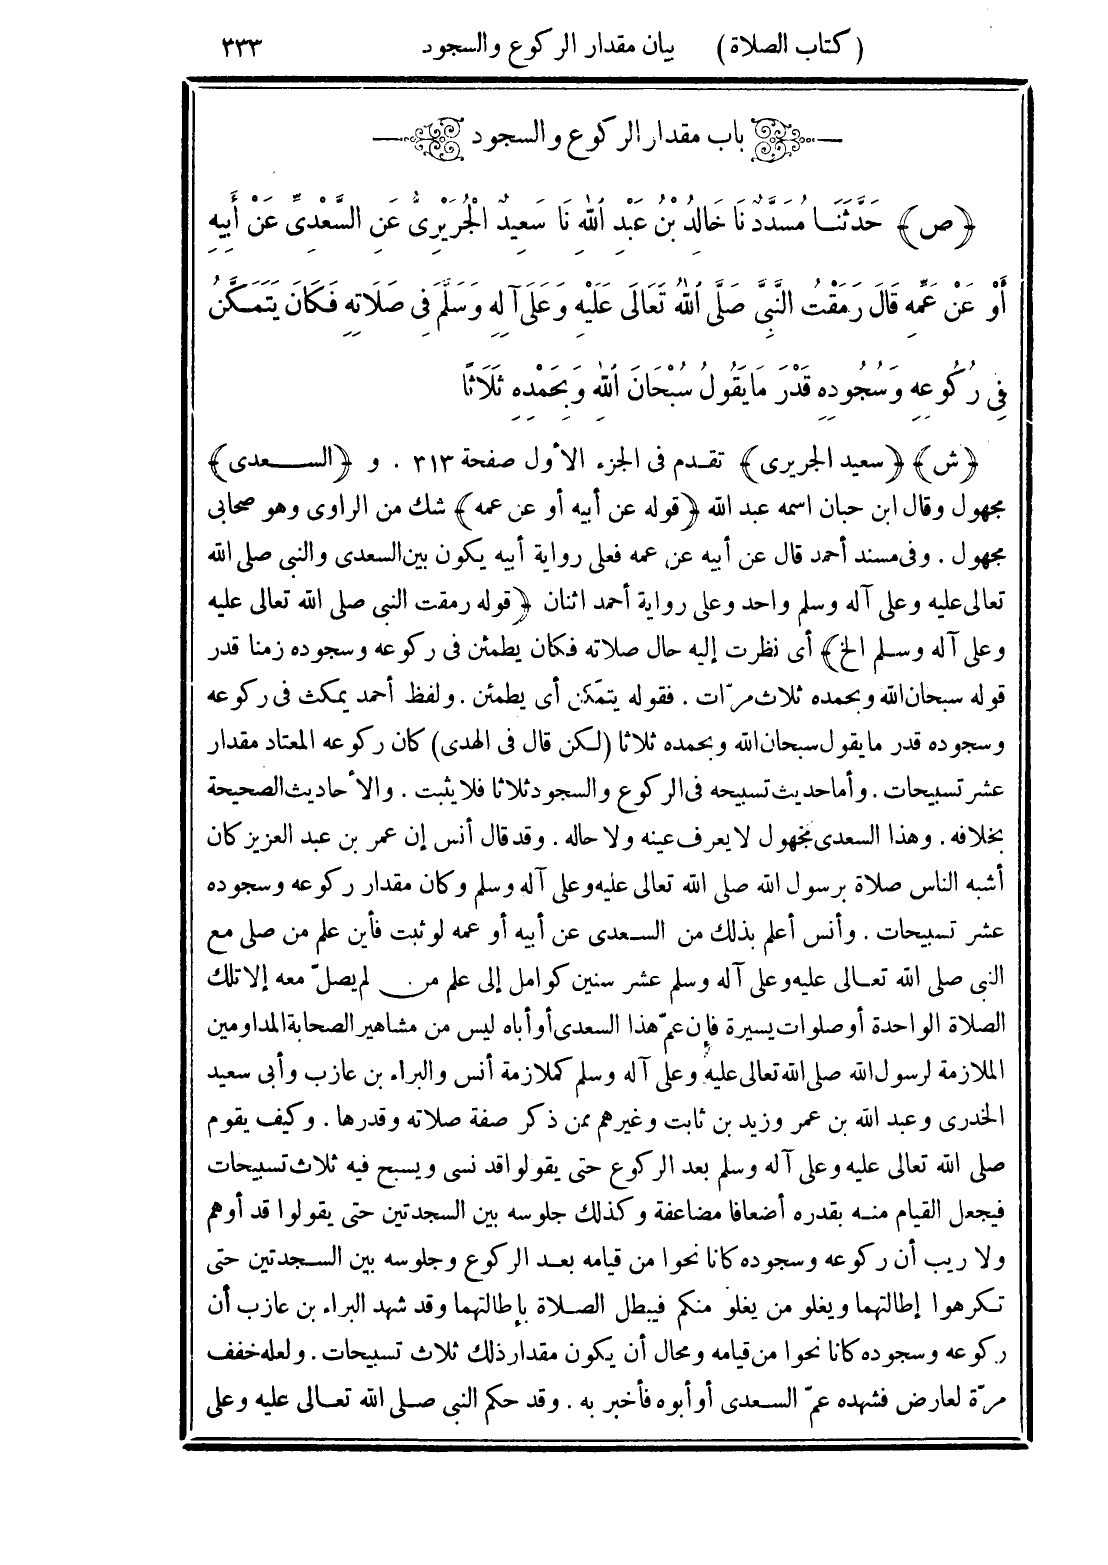 (كتاب الصلاة) بيان مقدار الركوع والسجود ٣٣٣
باب مقدار الركوع والسجود
﴿ص﴾ حَدَّثَنَا مُسَدَّدٌ نَا خَالِدُ بْنُ عَبْدِ اللهِ نَا سَعِيدٌ الْجُرَيْرِىُّ عَنِ السَّعْدِىِّ عَنْ أَبِيهِ
أَوْ عَنْ عَمِّهِ قَالَ رَمَقْتُ النَّبِىَّ صَلَّى اللهُ تَعَالَى عَلَيْهِ وَعَلَى آلِهِ وَسَلَّمَ فِى صَلَاتِهِ فَكَانَ يَتَمَكَّنُ
فِى رُكُوعِهِ وَسُجُودِهِ قَدْرَ مَا يَقُولُ سُبْحَانَ اللهِ وَبِحَمْدِهِ ثَلَاثًا
﴿ش﴾ ﴿سعيد الجريرى﴾ تقدم فى الجزء الأول صفحة ٣١٣ . و ﴿السعدى﴾
مجهول وقال ابن حبان اسمه عبد الله ﴿قوله عن أبيه أو عن عمه﴾ شك من الراوى وهو صحابى
مجهول . وفى مسند أحمد قال عن أبيه عن عمه فعلى رواية أبيه يكون بين السعدى والنبى صلى الله
تعالى عليه وعلى آله وسلم واحد وعلى رواية أحمد اثنان ﴿قوله رمقت النبى صلى الله تعالى عليه
وعلى آله وسلم الخ﴾ أى نظرت إليه حال صلاته فكان يطمئن فى ركوعه وسجوده زمنا قدر
قوله سبحان الله وبحمده ثلاث مرّات . فقوله يتمّكن أى يطمئن . ولفظ أحمد يمكث فى ركوعه
وسجوده قدر ما يقول سبحان الله وبحمده ثلاثا (لكن قال فى الهدى) كان ركوعه المعتاد مقدار
عشر تسبيحات . وأما حديث تسبيحه فى الركوع والسجود ثلاثا فلا يثبت . والأحاديث الصحيحة
بخلافه . وهذا السعدى مجهول لا يعرف عينه ولا حاله . وقد قال أنس إن عمر بن عبد العزيز كان
أشبه الناس صلاة برسول الله صلى الله تعالى عليه وعلى آله وسلم وكان مقدار ركوعه وسجوده
عشر تسبيحات . وأنس أعلم بذلك من السعدى عن أبيه أو عمه لو ثبت فأين علم من صلى مع
النبى صلى الله تعالى عليه وعلى آله وسلم عشر سنين كوامل إلى علم من لم يصلّ معه إلا تلك
الصلاة الواحدة أو صلوات يسيرة فإن عمّ هذا السعدى أو أباه ليس من مشاهير الصحابة المداومين
الملازمة لرسول الله صلى الله تعالى عليه وعلى آله وسلم كملازمة أنس والبراء بن عازب وأبى سعيد
الخدرى وعبد الله بن عمر وزيد بن ثابت وغيرهم ممن ذكر صفة صلاته وقدرها . وكيف يقوم
صلى الله تعالى عليه وعلى آله وسلم بعد الركوع حتى يقولوا قد نسى ويسبح فيه ثلاث تسبيحات
فيجعل القيام منه بقدره أضعافا مضاعفة وكذلك جلوسه بين السجدتين حتى يقولوا قد أوهم
ولا ريب أن ركوعه وسجوده كانا نحوا من قيامه بعد الركوع وجلوسه بين السجدتين حتى
تكرهوا إطالتهما ويغلو من يغلو منكم فيبطل الصلاة بإطالتهما وقد شهد البراء بن عازب أن
ركوعه وسجوده كانا نحوا من قيامه ومحال أن يكون مقدار ذلك ثلاث تسبيحات . ولعله خفف
مرّة لعارض فشهده عمّ السعدى أو أبوه فأخبر به . وقد حكم النبى صلى الله تعالى عليه وعلى